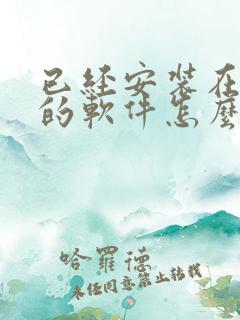 已经安装在
的軟件怎麼
哈羅德
未经同意禁止转载